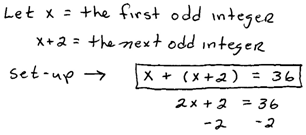 Let x = the first odd integer
x+2 = the next odd integer
set-up → x + (x+2) = 36
2x+2 = 36
-2 -2